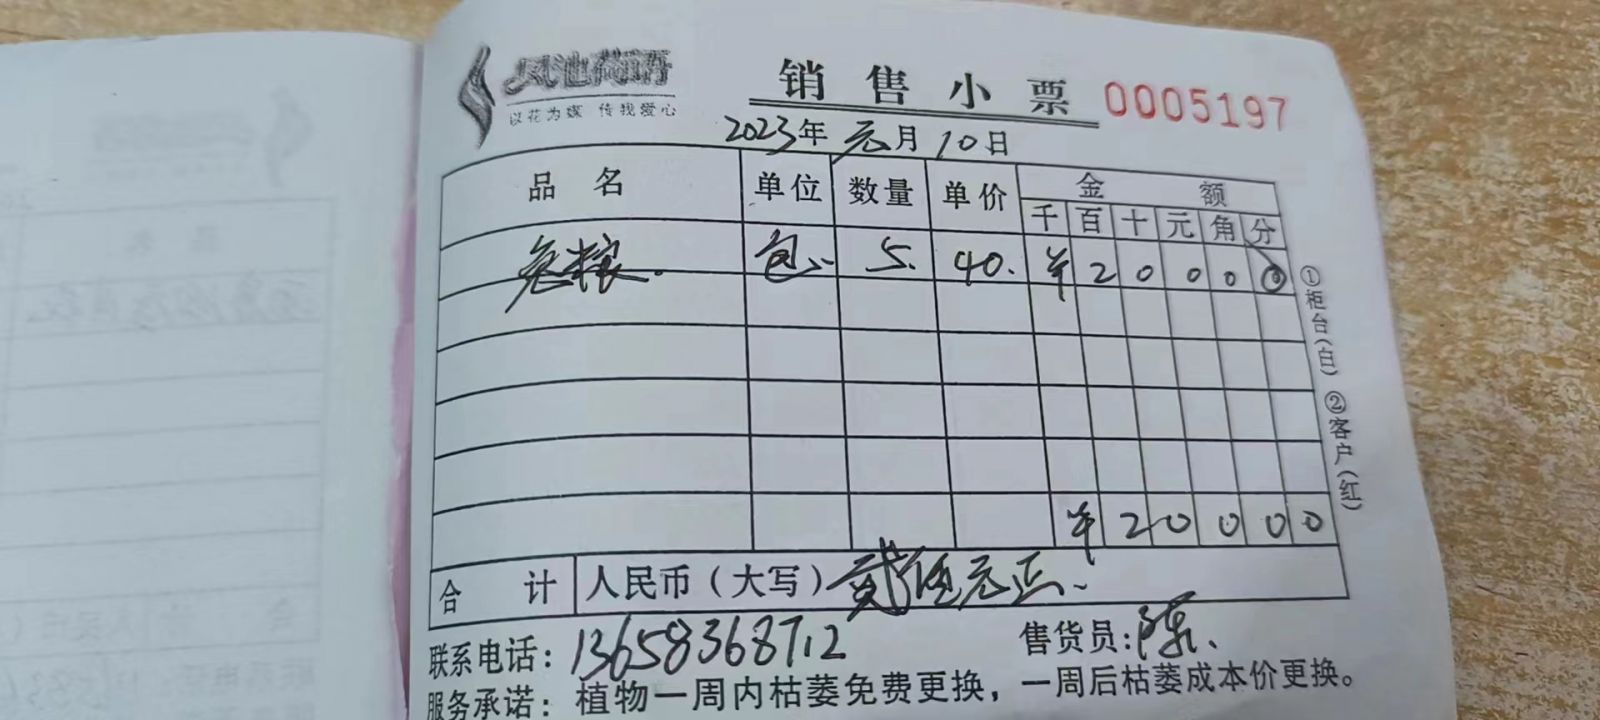 风池荷语
以花为媒 传我爱心
销售小票 0005197
2023年元月10日
品名 单位 数量 单价 金额
千 百 十 元 角 分
兔粮. 包 5. 40. ¥ 2 0 0 0 0
¥ 2 0 0 0 0
合计 人民币(大写) 贰佰元正、
联系电话: 13658368712 售货员: 陈、
服务承诺: 植物一周内枯萎免费更换，一周后枯萎成本价更换。
①柜台(白) ②客户(红)